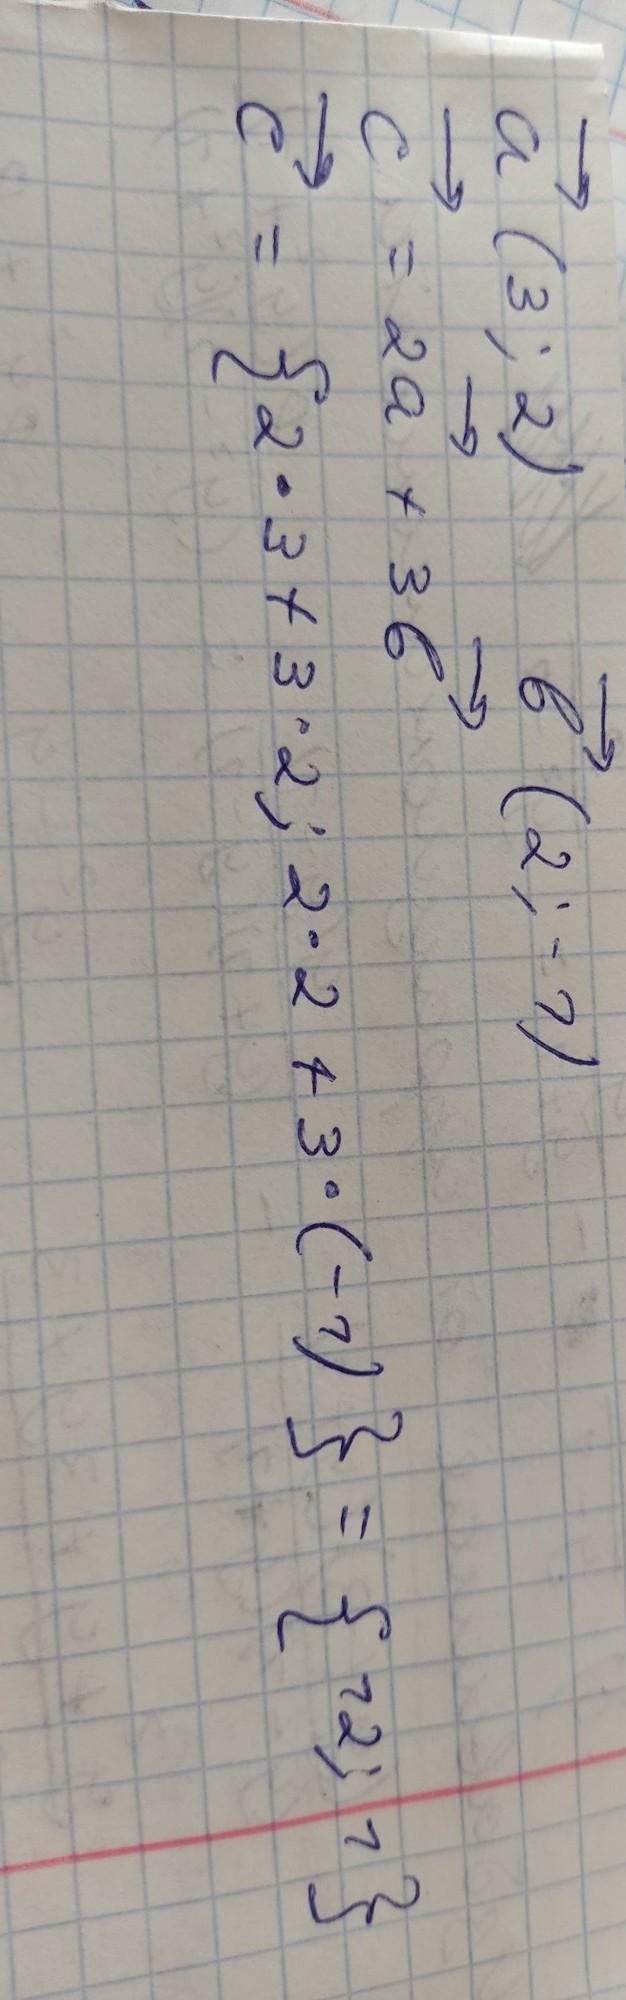 →a (3; 2) →b (2; -1)
→c = 2→a + 3→b
→c = {2·3+3·2; 2·2+3·(-1)} = {12; 1}